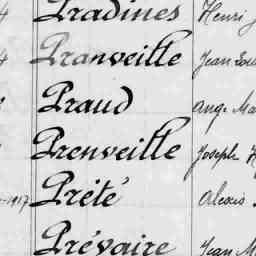 4 Pradines Henri J
4 Pranveille Jean Lou
Praud Ange Ma
Prenveille Joseph
1917 Prété Alexis
Prévaire Jean M